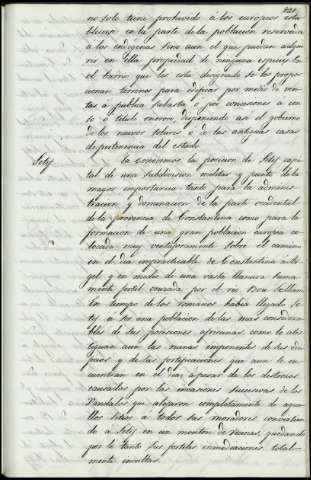 421
no solo tiene prohibido á los europeos esta
blecerse en la parte de la poblacion reservada
á los indigenas sino aun el que puedan adqui
rir en ella propiedad de ninguna especie. En
el barrio que les está designado se les propor
cionan terrenos para edificar por medio de ven
tas á publica subasta ó por concesiones a cen
so ó titulo oneroso, disponiendo asi el gobierno
de los nuevos solares ó de las antiguas casas
de pertenencia del estado.
Setif la posicion de Setif capi
tal de una subdivision militar y punto de la
mayor importancia tanto para la adminis
tracion y dominacion de la parte occidental
de la provincia de Constantina como para la
formacion de una gran poblacion europea co
locada muy ventajosamente sobre el camino
en el dia impracticable de Constantina á Ar
gel y en medio de una vasta llanura suma
mente fertil cruzada por el rio Bou Sellam
En tiempo de los romanos habia llegado Se
tif á ser una poblacion de las mas considera
bles de sus posesiones africanas como lo ates
tiguan aun las ruinas imponentes de sus edi
ficios y de las fortificaciones que aun se en
cuentran en el dia, á pesar de los destrozos
causados por las invasiones sucesivas de los
Vandalos que alejaron completamente de aque
llos sitios á todos sus moradores convirtien
do á Setif en un monton de ruinas, quedando
por lo tanto sus fertiles inmediaciones total
mente incultas.